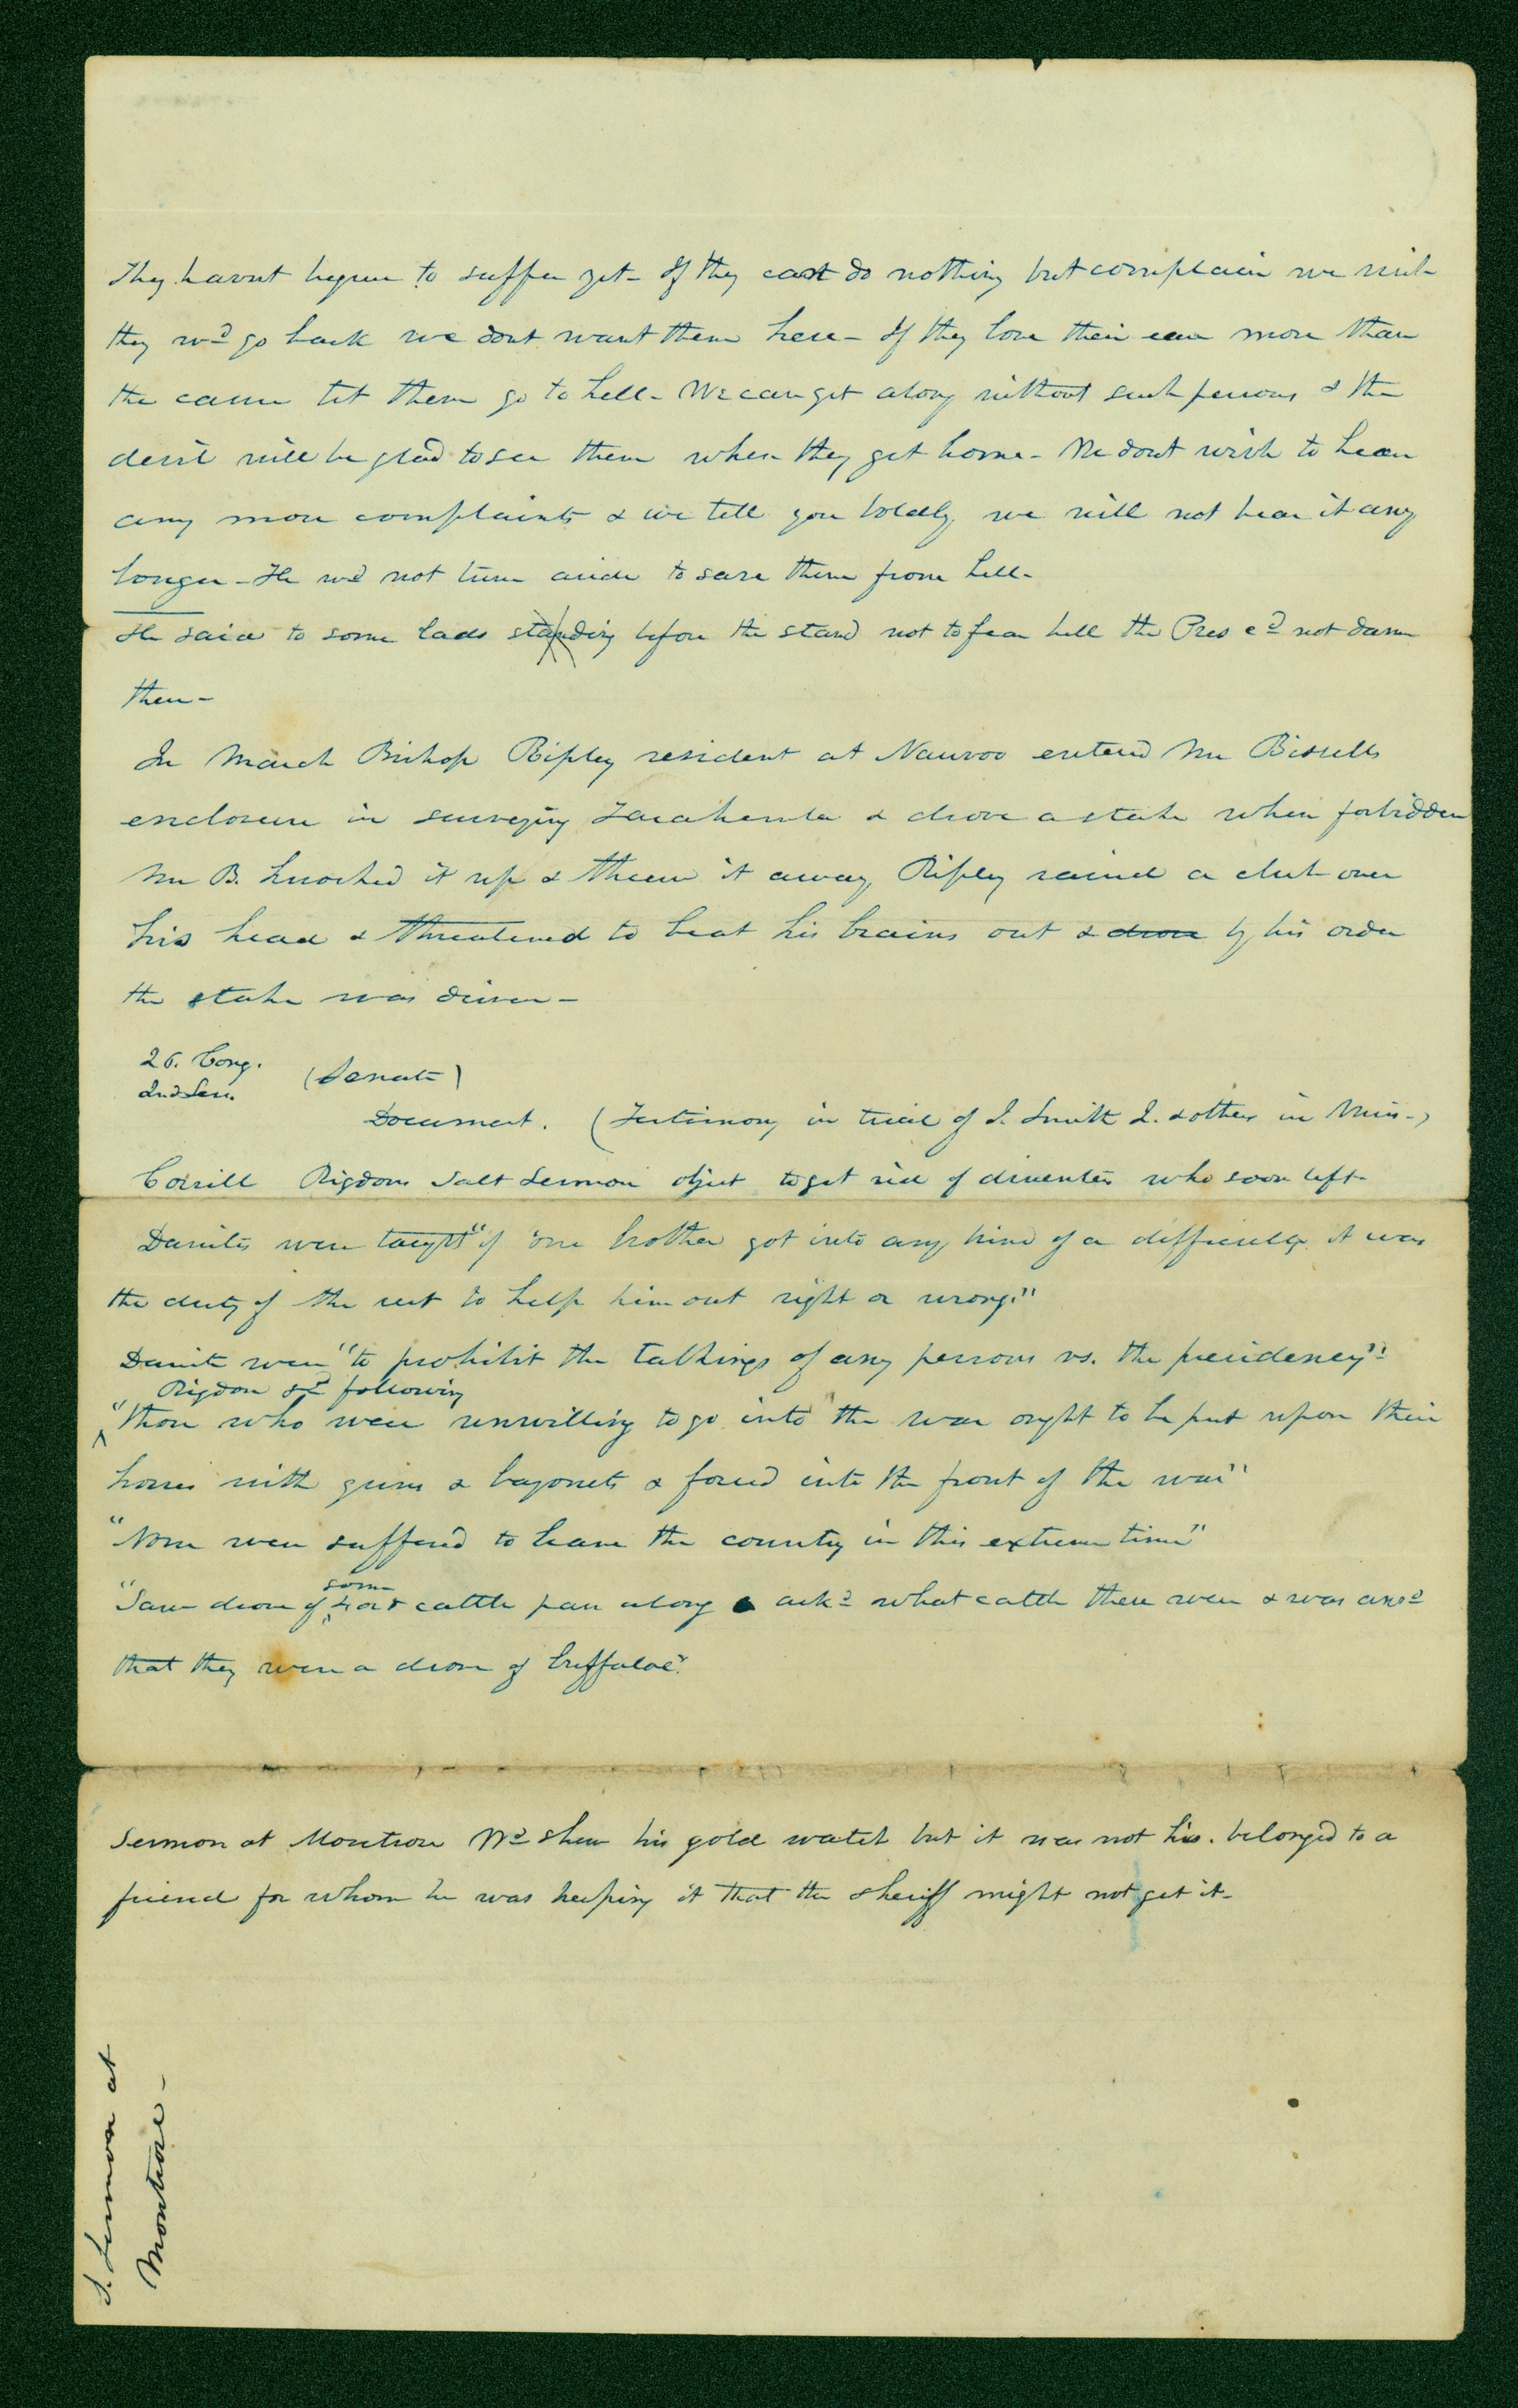 They havnt begun to suffer yet- If they cant do nothing but complain we wish
they wd go back we dont want them here- If they love their ease more than
the cause let them go to hell- We can get along without such persons & the
devil will be glad to see them when they get home- We dont wish to hear
any more complaints & we tell you boldly, we will not hear it any
longer- He wd not turn aside to save them from hell-
He said to some lads standing before the stand not to fear hell the Pres cd not damn
them-
In March Bishop Ripley resident at Nauvoo entered Mr Bissells
enclosure in surveying Zarahemla & drove a stake when forbidden
Mr B. knocked it up & threw it away, Ripley raised a club over
his head & threatened to beat his brains out & drove by his order
the stake was driven-
26. Cong. (Senate)
2nd Sess.
Document. (Testimony in trial of J. Smith J. & others in Miss-)
Corrill Rigdons Salt Sermon object to get rid of dissenters who soon left-
Danites were taught "if one brother got into any kind of a difficulty it was
the duty of the rest to help him out right or wrong."
Danite were "to prohibit the talkings of any persons vs. the presidency"-
Rigdon sd following
"Those who were unwilling to go into the war ought to be put upon their
horses with guns & bayonets & forced into the front of the war"
"None were suffered to leave the county in this extreme time"
some
"Saw drove of 4 or 5 cattle pass along askd what cattle these were & was ansd
that they were a drove of buffaloe".
Sermon at Montrose Wd shew his gold watch but it was not his. belonged to a
friend for whom he was keeping it that the sheriff might not get it-
S. Sermon at
Montrose-